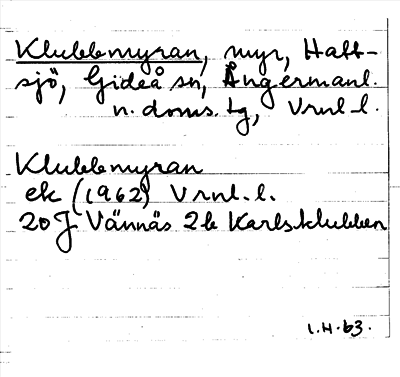 Klubbmyran, myr, Hatt-
sjö, Gideå sn, Ångermanl.
n. doms. tg, Vrnl. l.
Klubbmyran
ek (1962) Vrnl. l.
20J Vännäs 2b Karlsklubben
1.4.63.